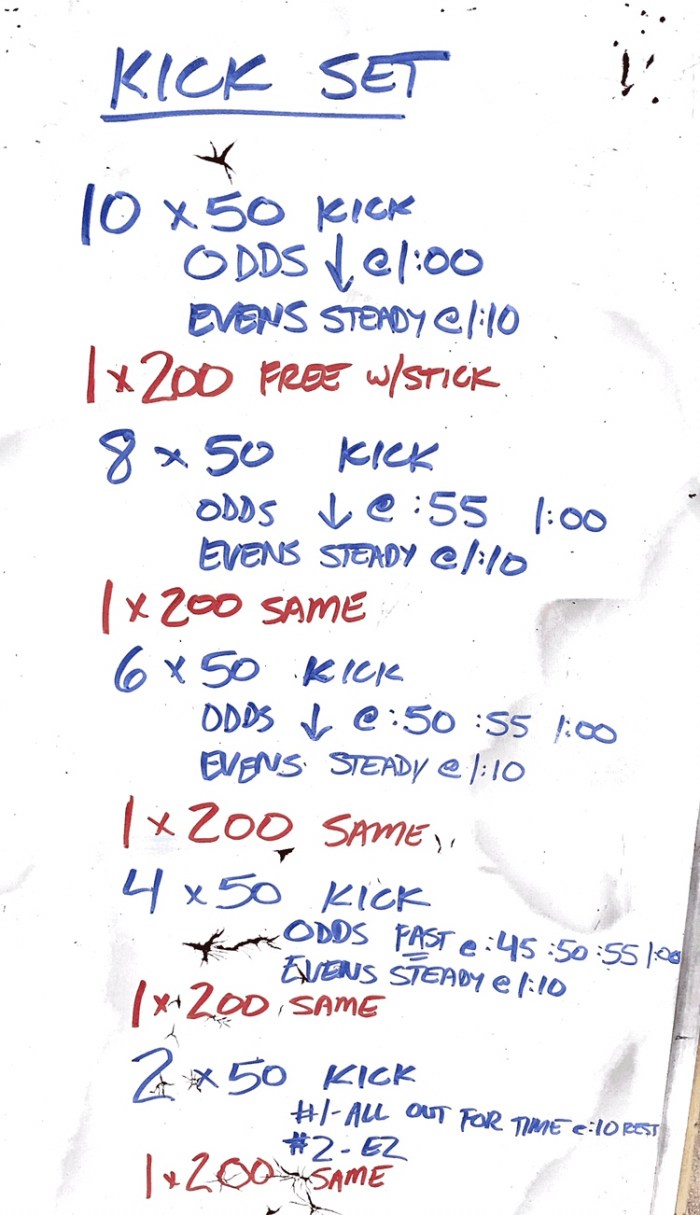 KICK SET
10 x 50 KICK
ODDS ↓ @ 1:00
EVENS STEADY @ 1:10
1 x 200 FREE W/STICK
8 x 50 KICK
ODDS ↓ @ :55 1:00
EVENS STEADY @ 1:10
1 x 200 SAME
6 x 50 KICK
ODDS ↓ @ :50 :55 1:00
EVENS STEADY @ 1:10
1 x 200 SAME
4 x 50 KICK
ODDS FAST @ :45 :50 :55 1:00
EVENS STEADY @ 1:10
1 x 200 SAME
2 x 50 KICK
#1-ALL OUT FOR TIME @ :10 REST
#2-EZ
1 x 200 SAME